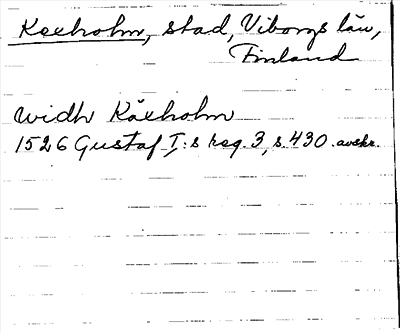 Kexholm, stad, Viborgs län,
Finland
widh Käxholm
1526 Gustaf I:s reg. 3, s. 430. avskr.